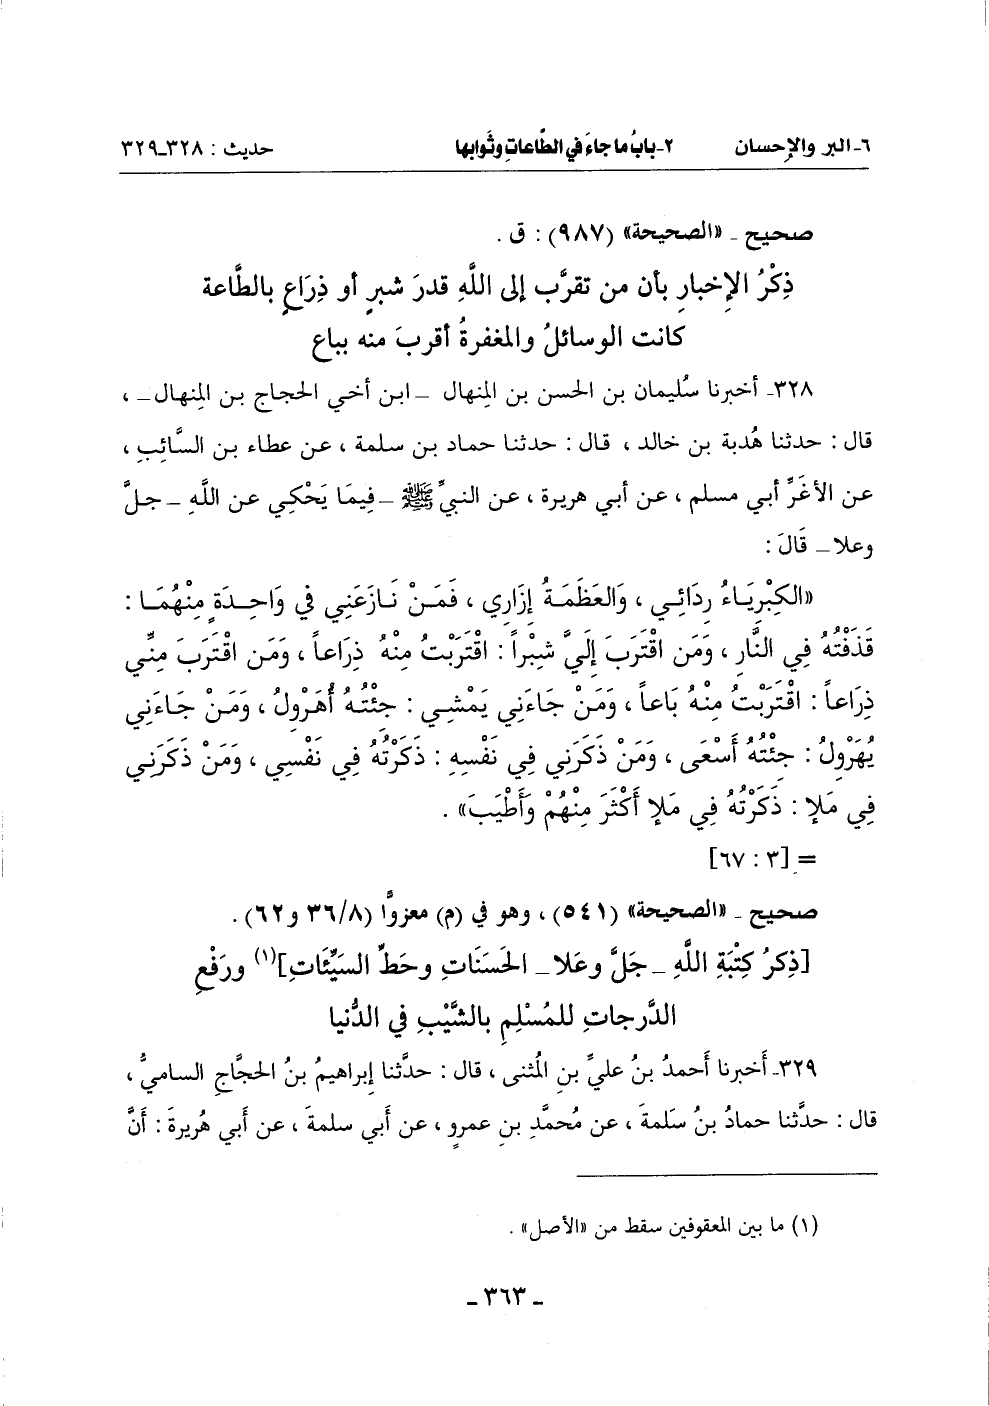 ٦- البر والإحسان ٢- بابُ ما جاءَ في الطَّاعاتِ وثَوابها حديث : ٣٢٨ـ٣٢٩
صحيح ـ «الصحيحة» (٩٨٧) : ق .
ذِكْرُ الإخبارِ بأن من تقرَّب إلى اللَّهِ قدرَ شبرٍ أو ذِرَاعٍ بالطَّاعة
كانت الوسائلُ والمغفرةُ أقربَ منه بباع
٣٢٨ـ أخبرنا سُليمان بن الحسن بن المِنهال ـ ابن أخي الحجاج بن المِنهال ـ ،
قال : حدثنا هُدبة بن خالد ، قال : حدثنا حماد بن سلمة ، عن عطاء بن السَّائِبِ ،
عن الأغَرِّ أبي مسلم ، عن أبي هريرة ، عن النبيِّ ﷺ ـ فِيمَا يَحْكِي عن اللَّهِ ـ جلَّ
وعلا ـ قَالَ :
«الكِبْرِيَاءُ رِدَائِي ، وَالعَظَمَةُ إِزَارِي ، فَمَنْ نَازَعَنِي في وَاحِدَةٍ مِنْهُمَا :
قَذَفْتُهُ فِي النَّارِ ، وَمَن اقْتَرَبَ إِلَيَّ شِبْراً : اقْتَرَبْتُ مِنْهُ ذِرَاعاً ، وَمَن اقْتَرَبَ مِنِّي
ذِرَاعاً : اقْتَرَبْتُ مِنْهُ بَاعاً ، وَمَنْ جَاءَنِي يَمْشِي : جِئْتُهُ أُهَرْوِلُ ، وَمَنْ جَاءَنِي
يُهَرْوِلُ : جِئْتُهُ أَسْعَى ، وَمَنْ ذَكَرَنِي فِي نَفْسِهِ : ذَكَرْتُهُ فِي نَفْسِي ، وَمَنْ ذَكَرَنِي
فِي مَلإ : ذَكَرْتُهُ فِي مَلإ أَكْثَرَ مِنْهُمْ وَأَطْيَبَ» .
= [٣ : ٦٧]
صحيح ـ «الصحيحة» (٥٤١) ، وهو في (م) معزوًّا (٣٦/٨ و ٦٢) .
[ذِكرُ كِتْبَةِ اللَّهِ ـ جَلَّ وعَلا ـ الحَسَنَاتِ وحَطِّ السَيِّئَاتِ](١) ورَفْعِ
الدَّرجاتِ للمُسْلِمِ بالشَّيْبِ في الدُّنيا
٣٢٩ـ أَخبرنا أَحمدُ بنُ عليِّ بنِ المُثنى ، قال : حدَّثنا إبراهيمُ بنُ الحجَّاجِ الساميُّ ،
قال : حدَّثنا حمادُ بنُ سَلمةَ ، عن مُحمَّدِ بنِ عمرٍو ، عن أَبي سلمةَ ، عن أَبي هُريرةَ : أَنَّ
(١) ما بين المعقوفين سقط من «الأصل» .
ـ ٣٦٣ ـ